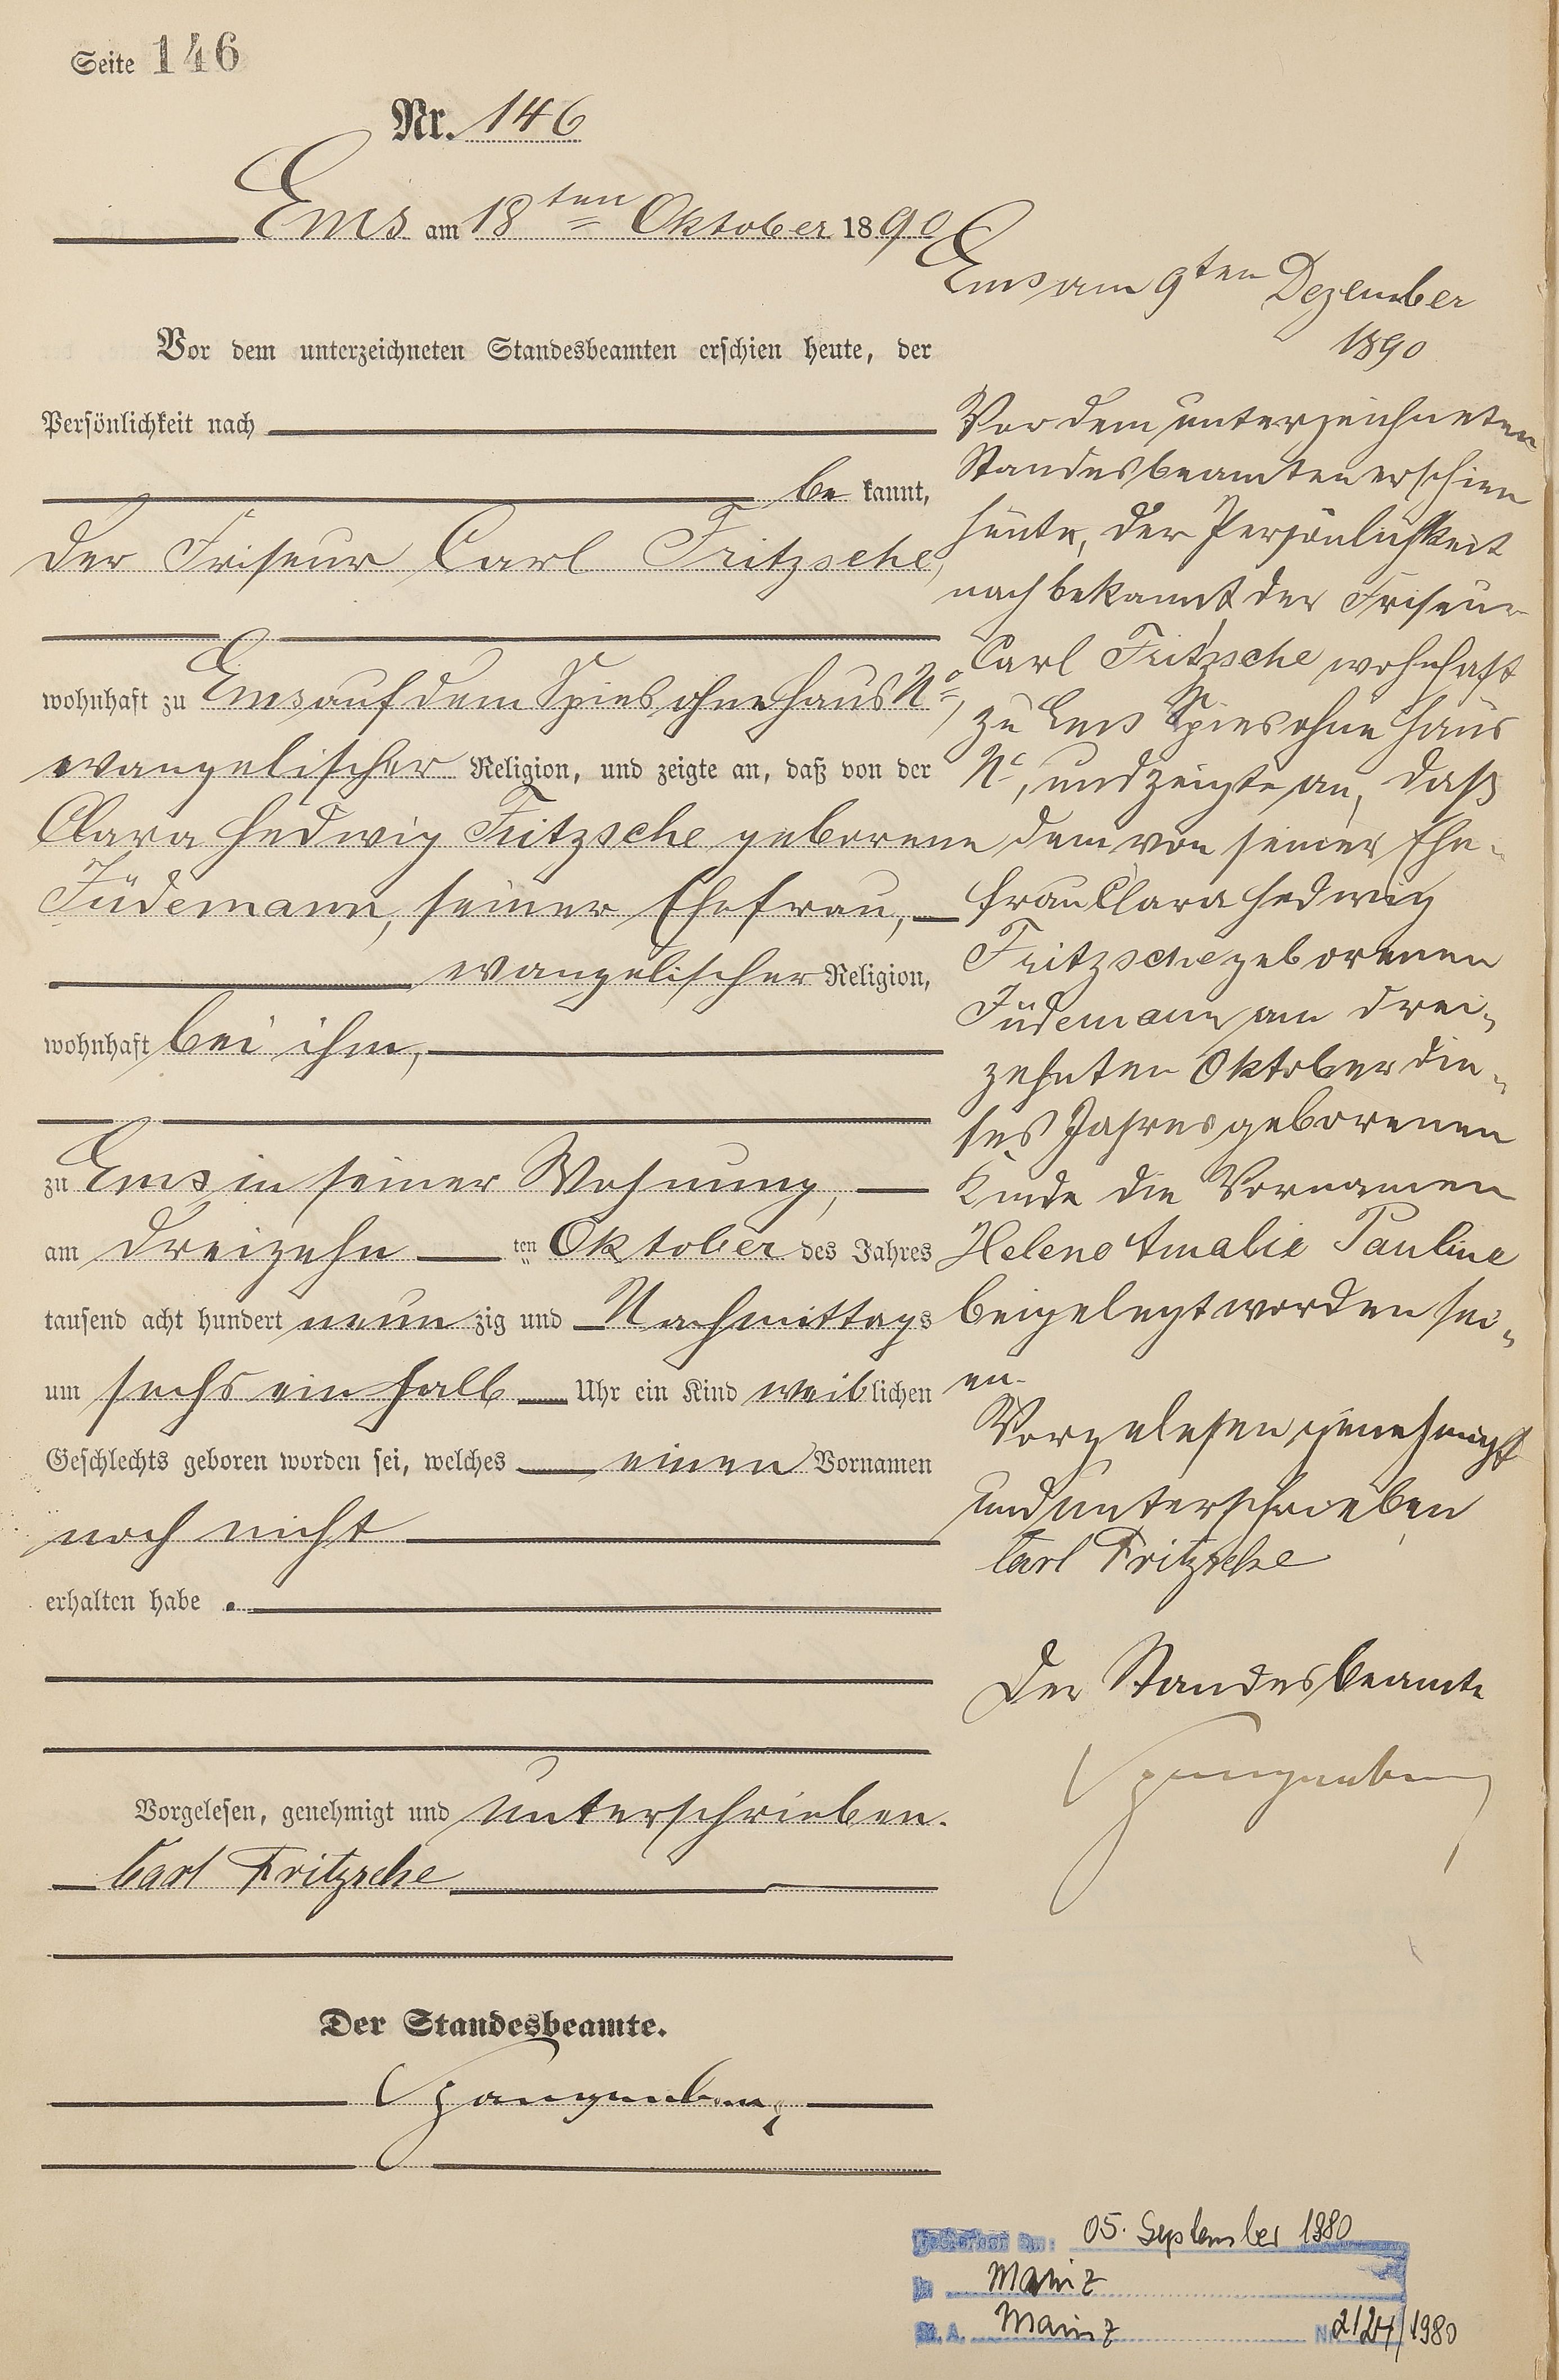 Seite 146
Nr. 146
Ems am 18ten Oktober 1890
Vor dem unterzeichneten Standesbeamten erschien heute, der
Persönlichkeit nach
be kannt,
der Friseur Carl Fritzsche,
wohnhaft zu Ems auf dem Spies ohne Haus No,
evangelischer Religion, und zeigte an, daß von der
Clara Hedwig Fritzsche geborene
Jüdemann, seiner Ehefrau,
evangelischer Religion,
wohnhaft bei ihm,
zu Ems in seiner Wohnung,
am dreizehn ten Oktober des Jahres
tausend acht hundert neun zig und Nachmittags
um sechs ein halb Uhr ein Kind weiblichen
Geschlechts geboren worden sei, welches einen Vornamen
noch nicht
erhalten habe .
Vorgelesen, genehmigt und unterschrieben.
Carl Fritzsche
Der Standesbeamte.
Spangenberg
Ems am 9ten Dezember
1890
Vor dem unterzeichneten
Standesbeamten erschien
heute, der Persönlichkeit
nach bekannt, der Friseur
Carl Fritzsche wohnhaft
zu Ems Spies ohne Haus
No, und zeigte an, daß
dem von seiner Ehe-
frau Clara Hedwig
Fritzsche geborenen
Jüdemann am drei-
zehnten Oktober die-
ses Jahres geborenen
Kinde die Vornamen
Helene Amalie Pauline
beigelegt worden sei-
en.
Vorgelesen, genehmigt
und unterschrieben
Carl Fritzsche
Der Standesbeamte
Spangenberg
Gestorben am: 05. September 1980
in Mainz
St. A. Mainz Nr. /1980